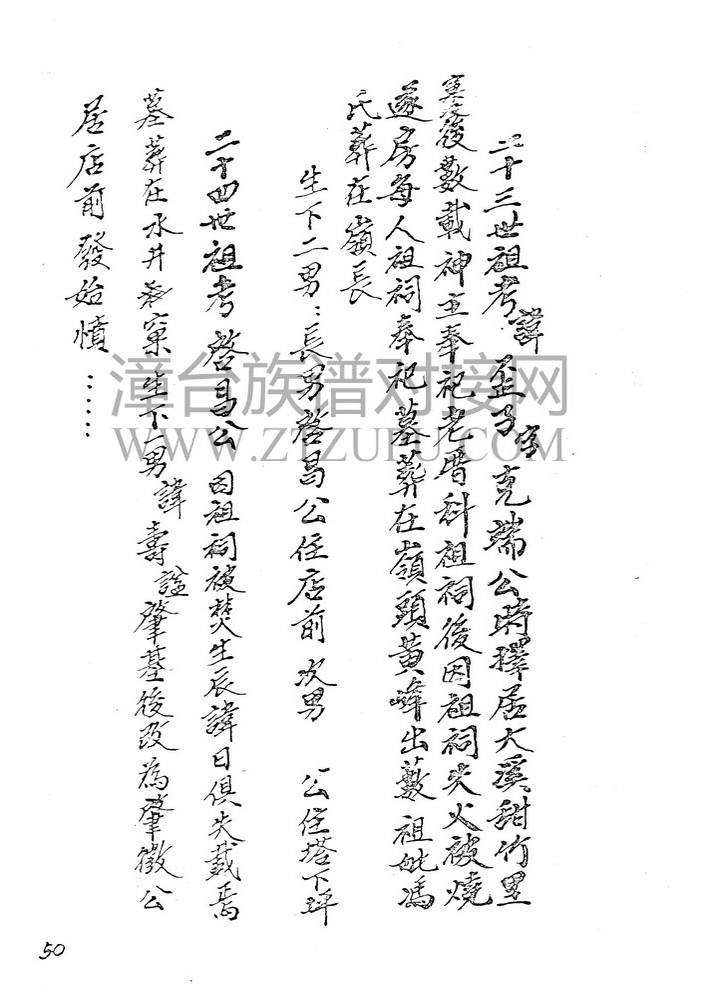 二十三世祖考諱歪子字克端公時擇居大溪甜竹里
寞後數載神主奉祀老厝科祖祠後因祖祠失火被燒
遂房每人祖祠奉祀墓葬在嶺頭黃峰出藪祖妣馮
氏葬在嶺長
生下二男：長男啓昌公住店前次男 公住塔下坪
二十四世祖考啓昌公因祖祠被焚生辰諱日俱失載焉
墓葬在水井窠生下一男諱壽諡肇基後改為肇徵公
居店前發始憤……
漳台族谱对接网
WWW.ZTZUPU.COM
50